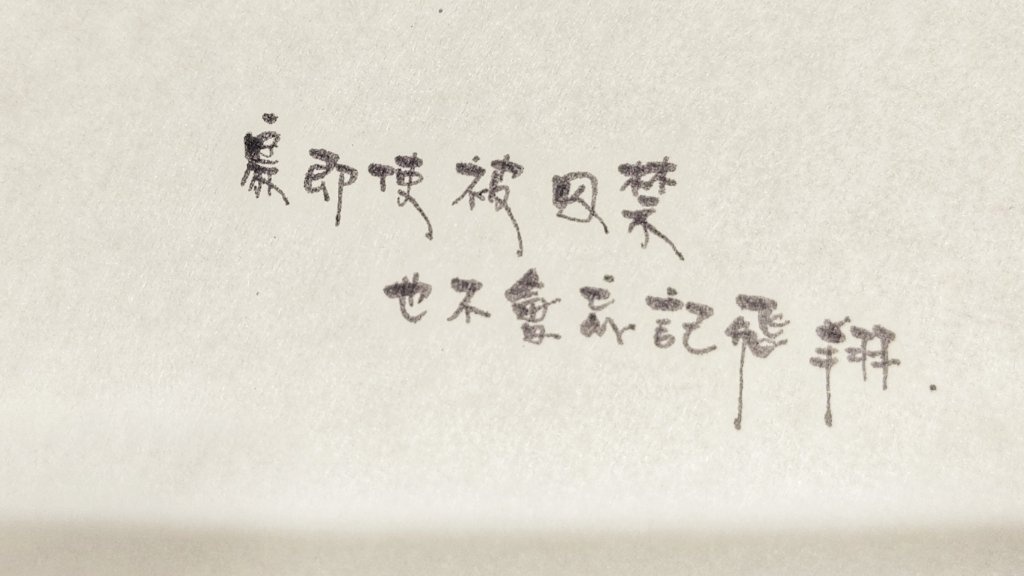 即使被囚禁
也不會忘記飛翔.